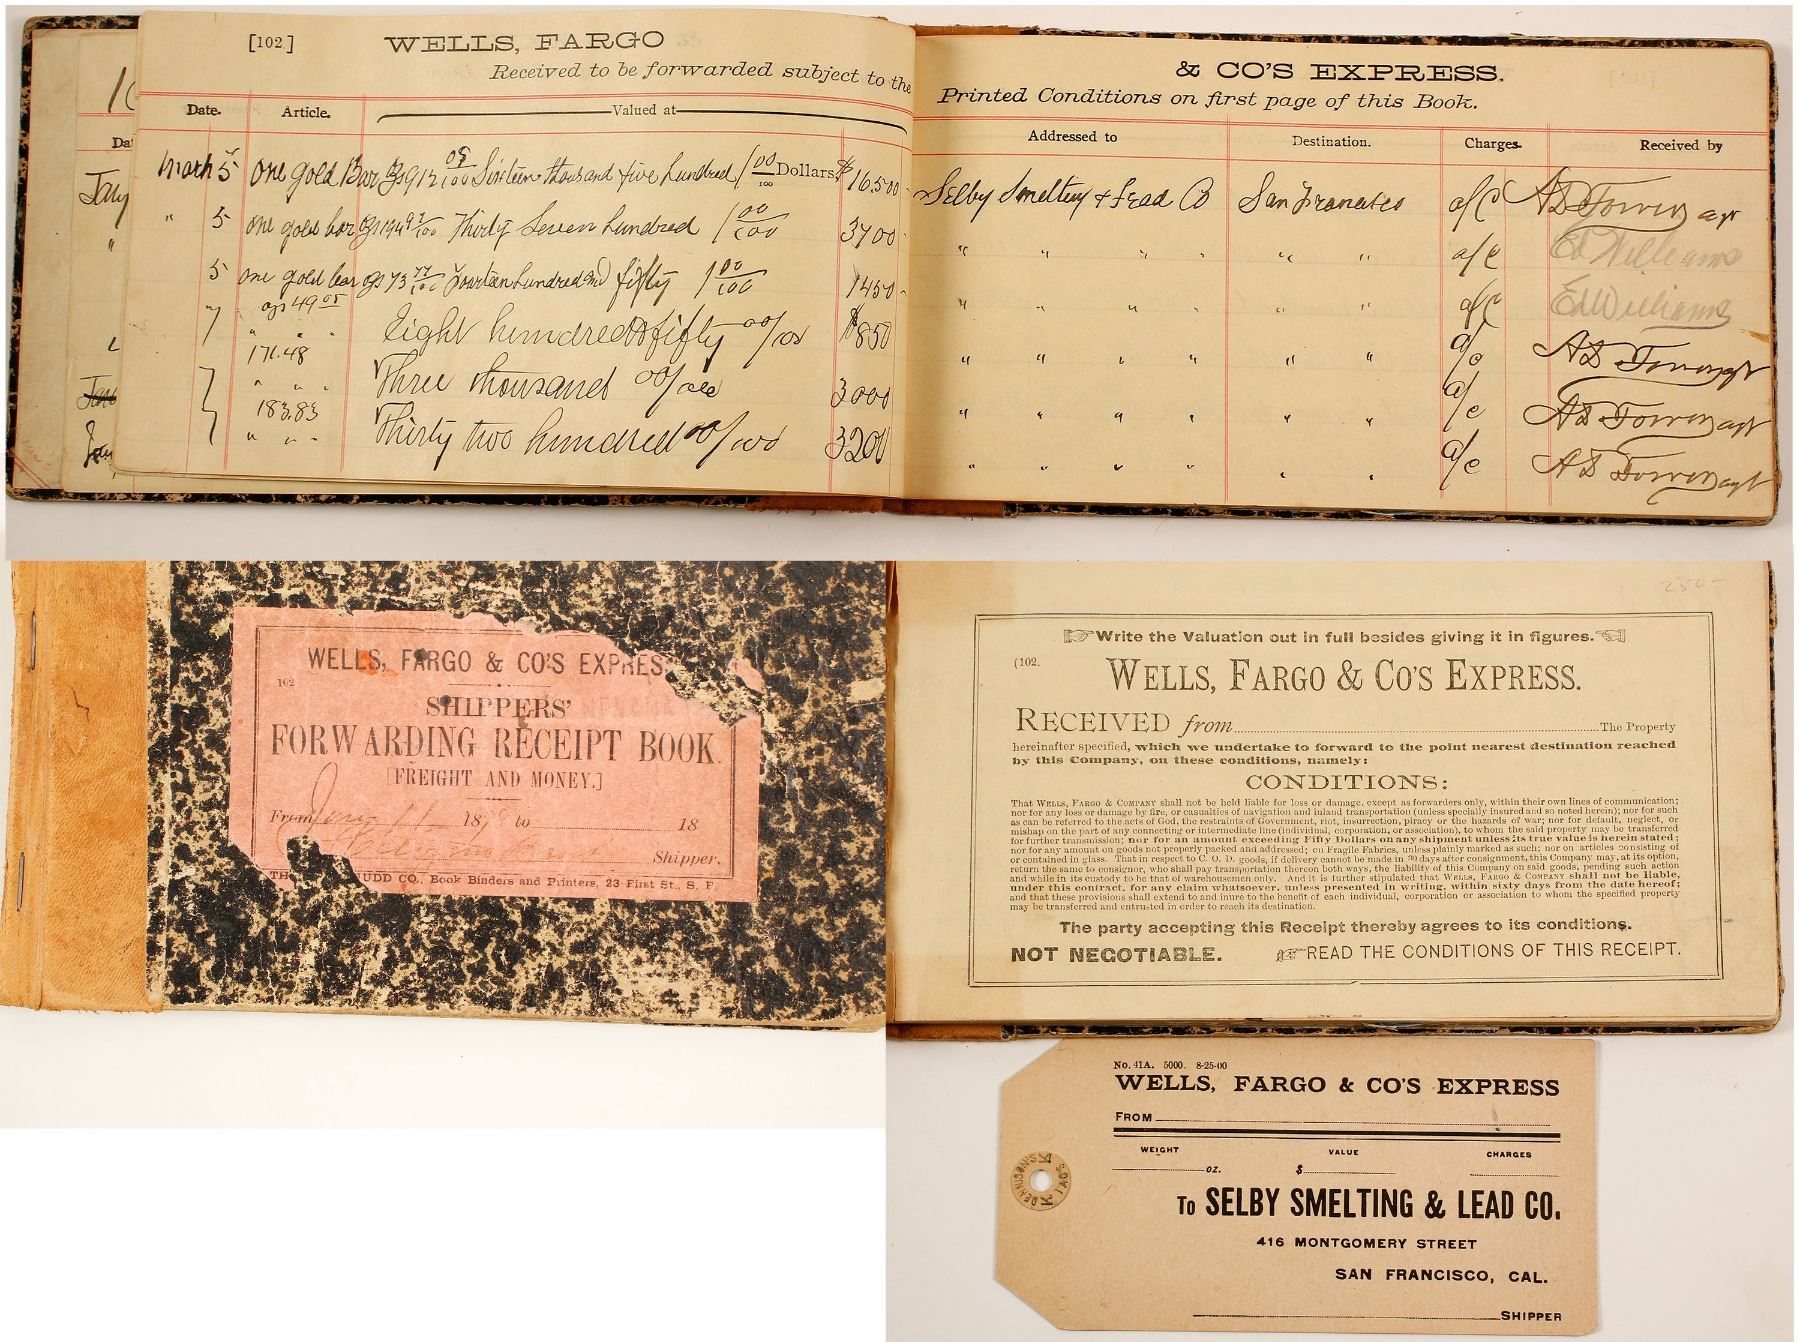 [102] WELLS, FARGO & CO'S EXPRESS.
Received to be forwarded subject to the Printed Conditions on first page of this Book.
Date. Article. Valued at Addressed to Destination. Charges. Received by
March 5 One gold Bar ozs 912 05/100 Sixteen thousand five hundred 00/100 Dollars, $16,500 Selby Smelting & Lead Co San Francisco a/c
" 5 one gold bar ozs Thirty Seven hundred 00/100 3700 " " " " " " a/c Ed Williams
5 one gold bar ozs 73 77/100 Fourteen hundred and fifty 00/100 1450 " " " " " " a/c Ed Williams
7 ozs 49 05 " " " Eight hundred & fifty 00/100 $850 " " " " " " a/c
171.48 " " " Three thousand 00/100 3000 " " " " " " a/c
183.83 " " " Thirty two hundred 00/100 3200 " " " " " " a/c
Jany
"
WELLS, FARGO & CO'S EXPRES
102
SHIPPERS'
FORWARDING RECEIPT BOOK.
[FREIGHT AND MONEY.]
From 18 to 18
Shipper.
TH UDD CO., Book Binders and Printers, 23 First St., S. F
250-
Write the Valuation out in full besides giving it in figures.
(102.
WELLS, FARGO & CO'S EXPRESS.
RECEIVED from The Property
hereinafter specified, which we undertake to forward to the point nearest destination reached
by this Company, on these conditions, namely:
CONDITIONS:
That WELLS, FARGO & COMPANY shall not be held liable for loss or damage, except as forwarders only, within their own lines of communication;
nor for any loss or damage by fire, or casualties of navigation and inland transportation (unless specially insured and so noted herein); nor for such
as can be referred to the acts of God, the restraints of Government, riot, insurrection, piracy or the hazards of war; nor for default, neglect, or
mishap on the part of any connecting or intermediate line (individual, corporation, or association), to whom the said property may be transferred
for further transmission; nor for an amount exceeding Fifty Dollars on any shipment unless its true value is herein stated;
nor for any amount on goods not properly packed and addressed; on Fragile Fabrics, unless plainly marked as such; nor on articles consisting of
or contained in glass. That in respect to C. O. D. goods, if delivery cannot be made in 30 days after consignment, this Company may, at its option,
return the same to consignor, who shall pay transportation thereon both ways, the liability of this Company on said goods, pending such action
and while in its custody to be that of warehousemen only. And it is further stipulated that WELLS, FARGO & COMPANY shall not be liable,
under this contract, for any claim whatsoever, unless presented in writing, within sixty days from the date hereof;
and that these provisions shall extend to and inure to the benefit of each individual, corporation or association to whom the specified property
may be transferred and entrusted in order to reach its destination.
The party accepting this Receipt thereby agrees to its conditions.
NOT NEGOTIABLE. READ THE CONDITIONS OF THIS RECEIPT.
No. 41A. 5000. 8-25-00
WELLS, FARGO & CO'S EXPRESS
FROM
WEIGHT VALUE CHARGES
OZ. $
DENNISON'S TAGS
K K
TO SELBY SMELTING & LEAD CO.
416 MONTGOMERY STREET
SAN FRANCISCO, CAL.
SHIPPER